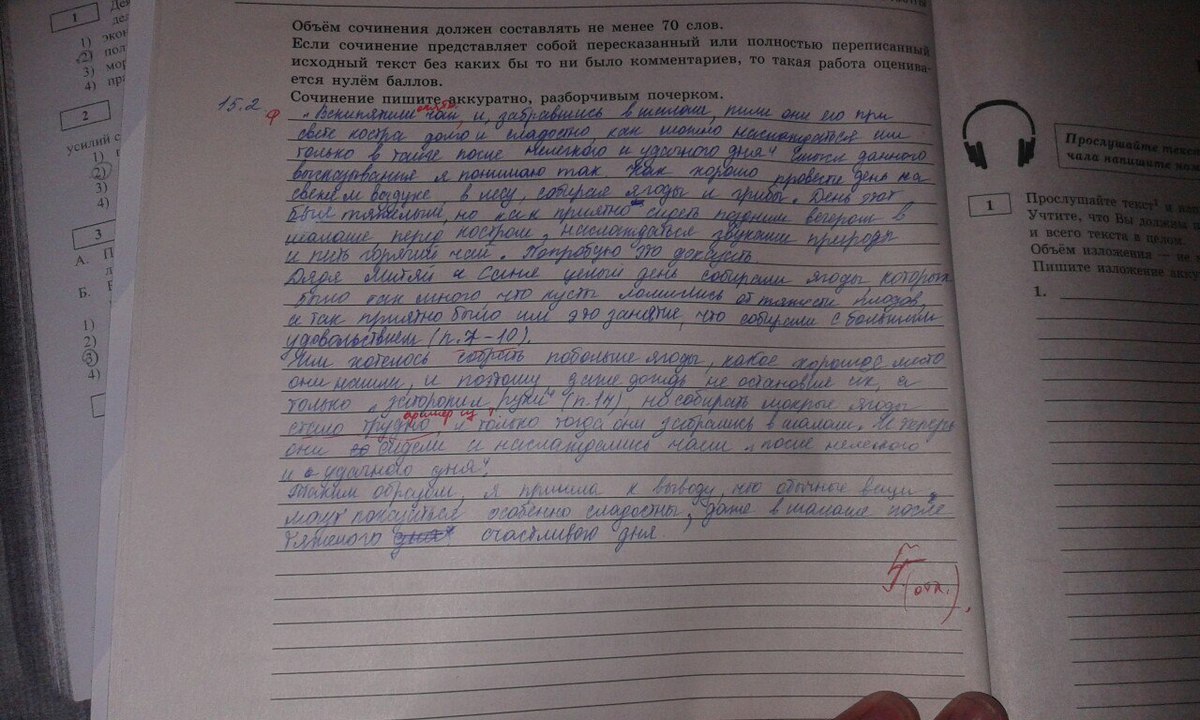 Объём сочинения должен составлять не менее 70 слов.
Если сочинение представляет собой пересказанный или полностью переписанный
исходный текст без каких бы то ни было комментариев, то такая работа оценива-
ется нулём баллов.
Сочинение пишите аккуратно, разборчивым почерком.
15.2
ф
„Вскипятили опять чай, и, забравшись в шалаш, пили они его при
свете костра долго и сладостно как можно наслаждаться им
только в тайге после нелегкого и удачного дня" Смысл данного
высказывания я понимаю так. Как хорошо провести день на
свежем воздухе в лесу, собирая ягоды и грибы. День этот
был тяжелым, но как приятно сидеть поздним вечером в
шалаше перед костром, наслаждаться звуками природы
и пить горячий чай. Попробую это доказать.
Дядя Митяй и Саня целый день собирали ягоды, которых
было так много что кусты ломились от тяжести плодов,
и так приятно было им это занятие, что собирали с большим
удовольствием (п.7-10).
Им хотелось собрать побольше ягоды, какое хорошое место
они нашли, и поэтому даже дождь не остановил их, а
только „заторопил руки" (п.14), но собирать мокрые ягоды
стало трудно, и только тогда они забрались в шалаш. И теперь
пример из
они сидели и наслаждались чаем „после нелегкого
и удачного дня".
Таким образом, я пришла к выводу, что обычные вещи
могут показаться особенно сладостны, даже в шалаше после
тяжелого счастливого дня.
5
(отл.).
1
2)
3)
4)
2
усилий с
1)
2)
3)
4)
3
А.
Б.
1)
2)
3
4)
Прослушайте текст
чала напишите
1
Прослушайте текст¹ и
Учтите, что Вы должны
и всего текста в целом.
Объём изложения — не
Пишите изложение
1.